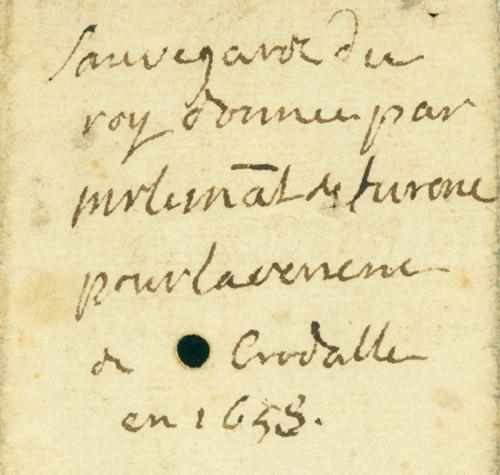 Sauvegarde du
roy donnee par
mr le mãal de turene
pour la
de Crodalle
en 1658.